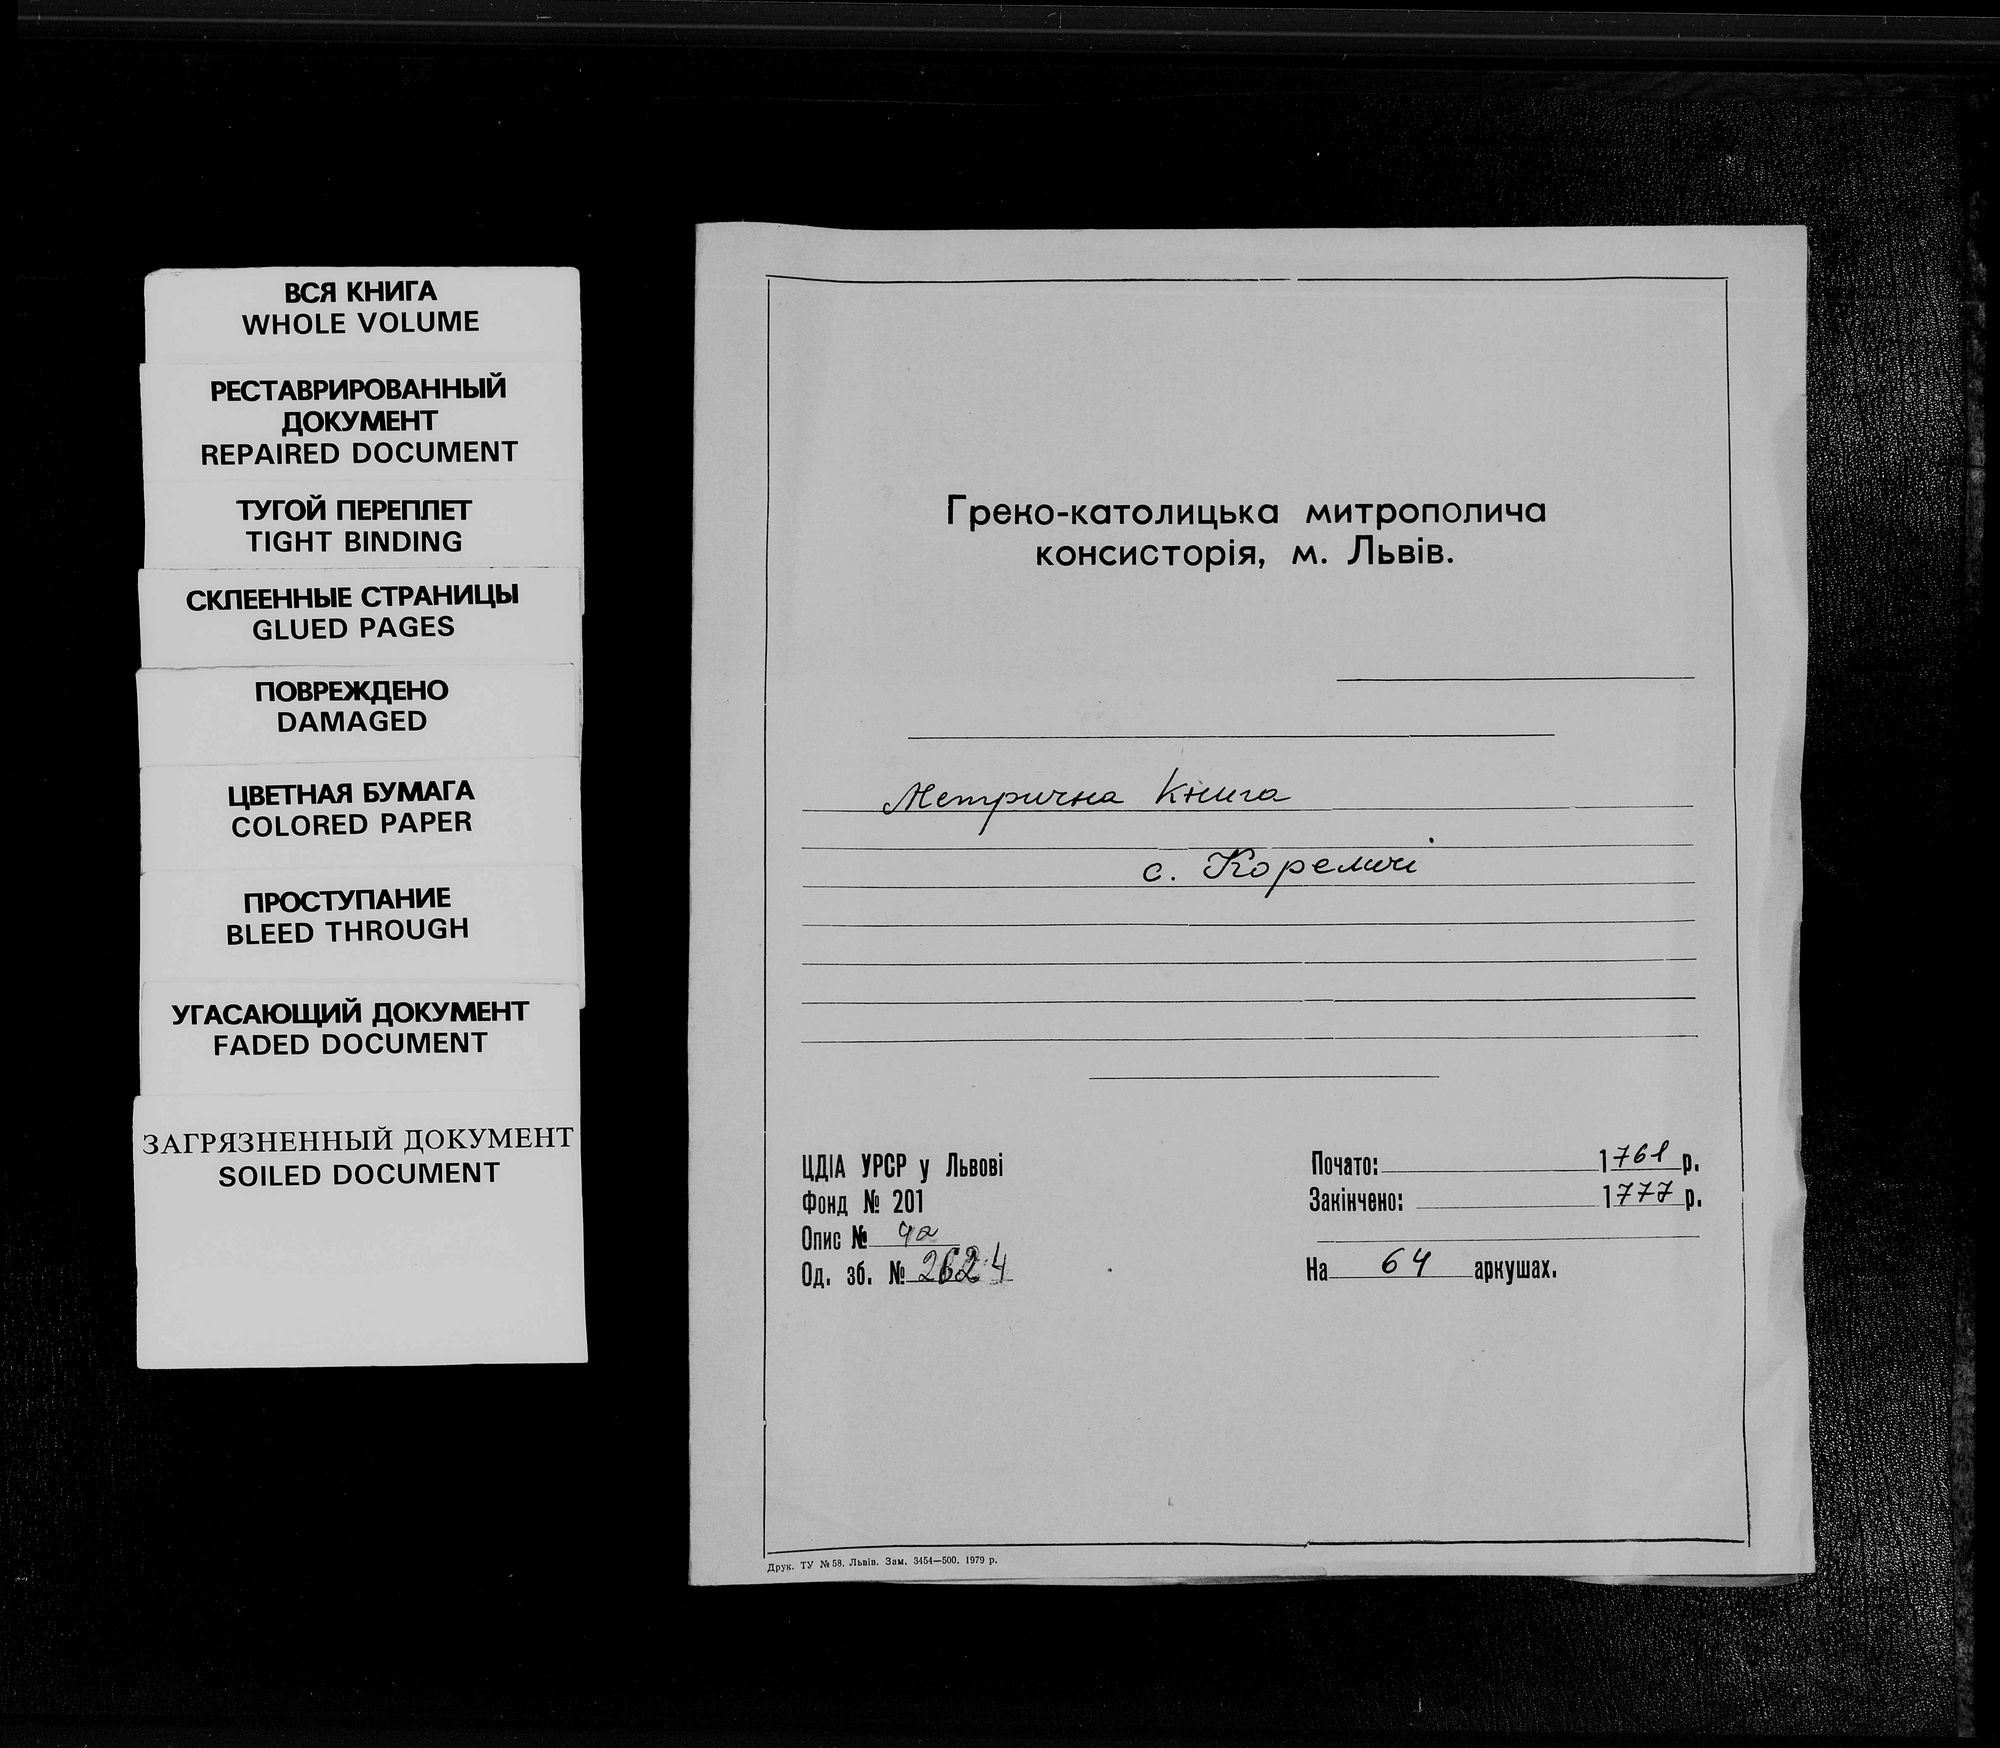 ВСЯ КНИГА
WHOLE VOLUME
РЕСТАВРИРОВАННЫЙ
ДОКУМЕНТ
REPAIRED DOCUMENT
ТУГОЙ ПЕРЕПЛЕТ
TIGHT BINDING
СКЛЕЕННЫЕ СТРАНИЦЫ
GLUED PAGES
ПОВРЕЖДЕНО
DAMAGED
ЦВЕТНАЯ БУМАГА
COLORED PAPER
ПРОСТУПАНИЕ
BLEED THROUGH
УГАСАЮЩИЙ ДОКУМЕНТ
FADED DOCUMENT
ЗАГРЯЗНЕННЫЙ ДОКУМЕНТ
SOILED DOCUMENT
Греко-католицька митрополича
консисторія, м. Львів.
Метрична Книга
с. Кореличі
ЦДІА УРСР у Львові
Фонд № 201
Опис № 4а
Од. зб. № 2624
Почато: 1761 р.
Закінчено: 1777 р.
На 64 аркушах.
Друк. ТУ №58. Львів. Зам. 3454—500. 1979 р.